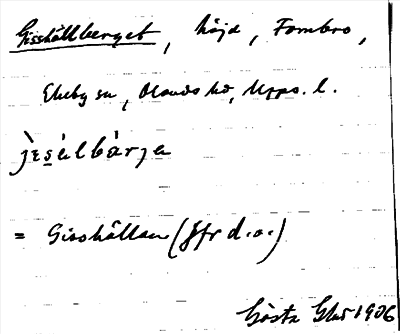 Gisshällberget, höjd, Fombro,
Ekeby sn, Olands hd, Upps. l.
jɛsàlbàrja
= Gisshällan (Jfr d.o.)
Gösta 1906